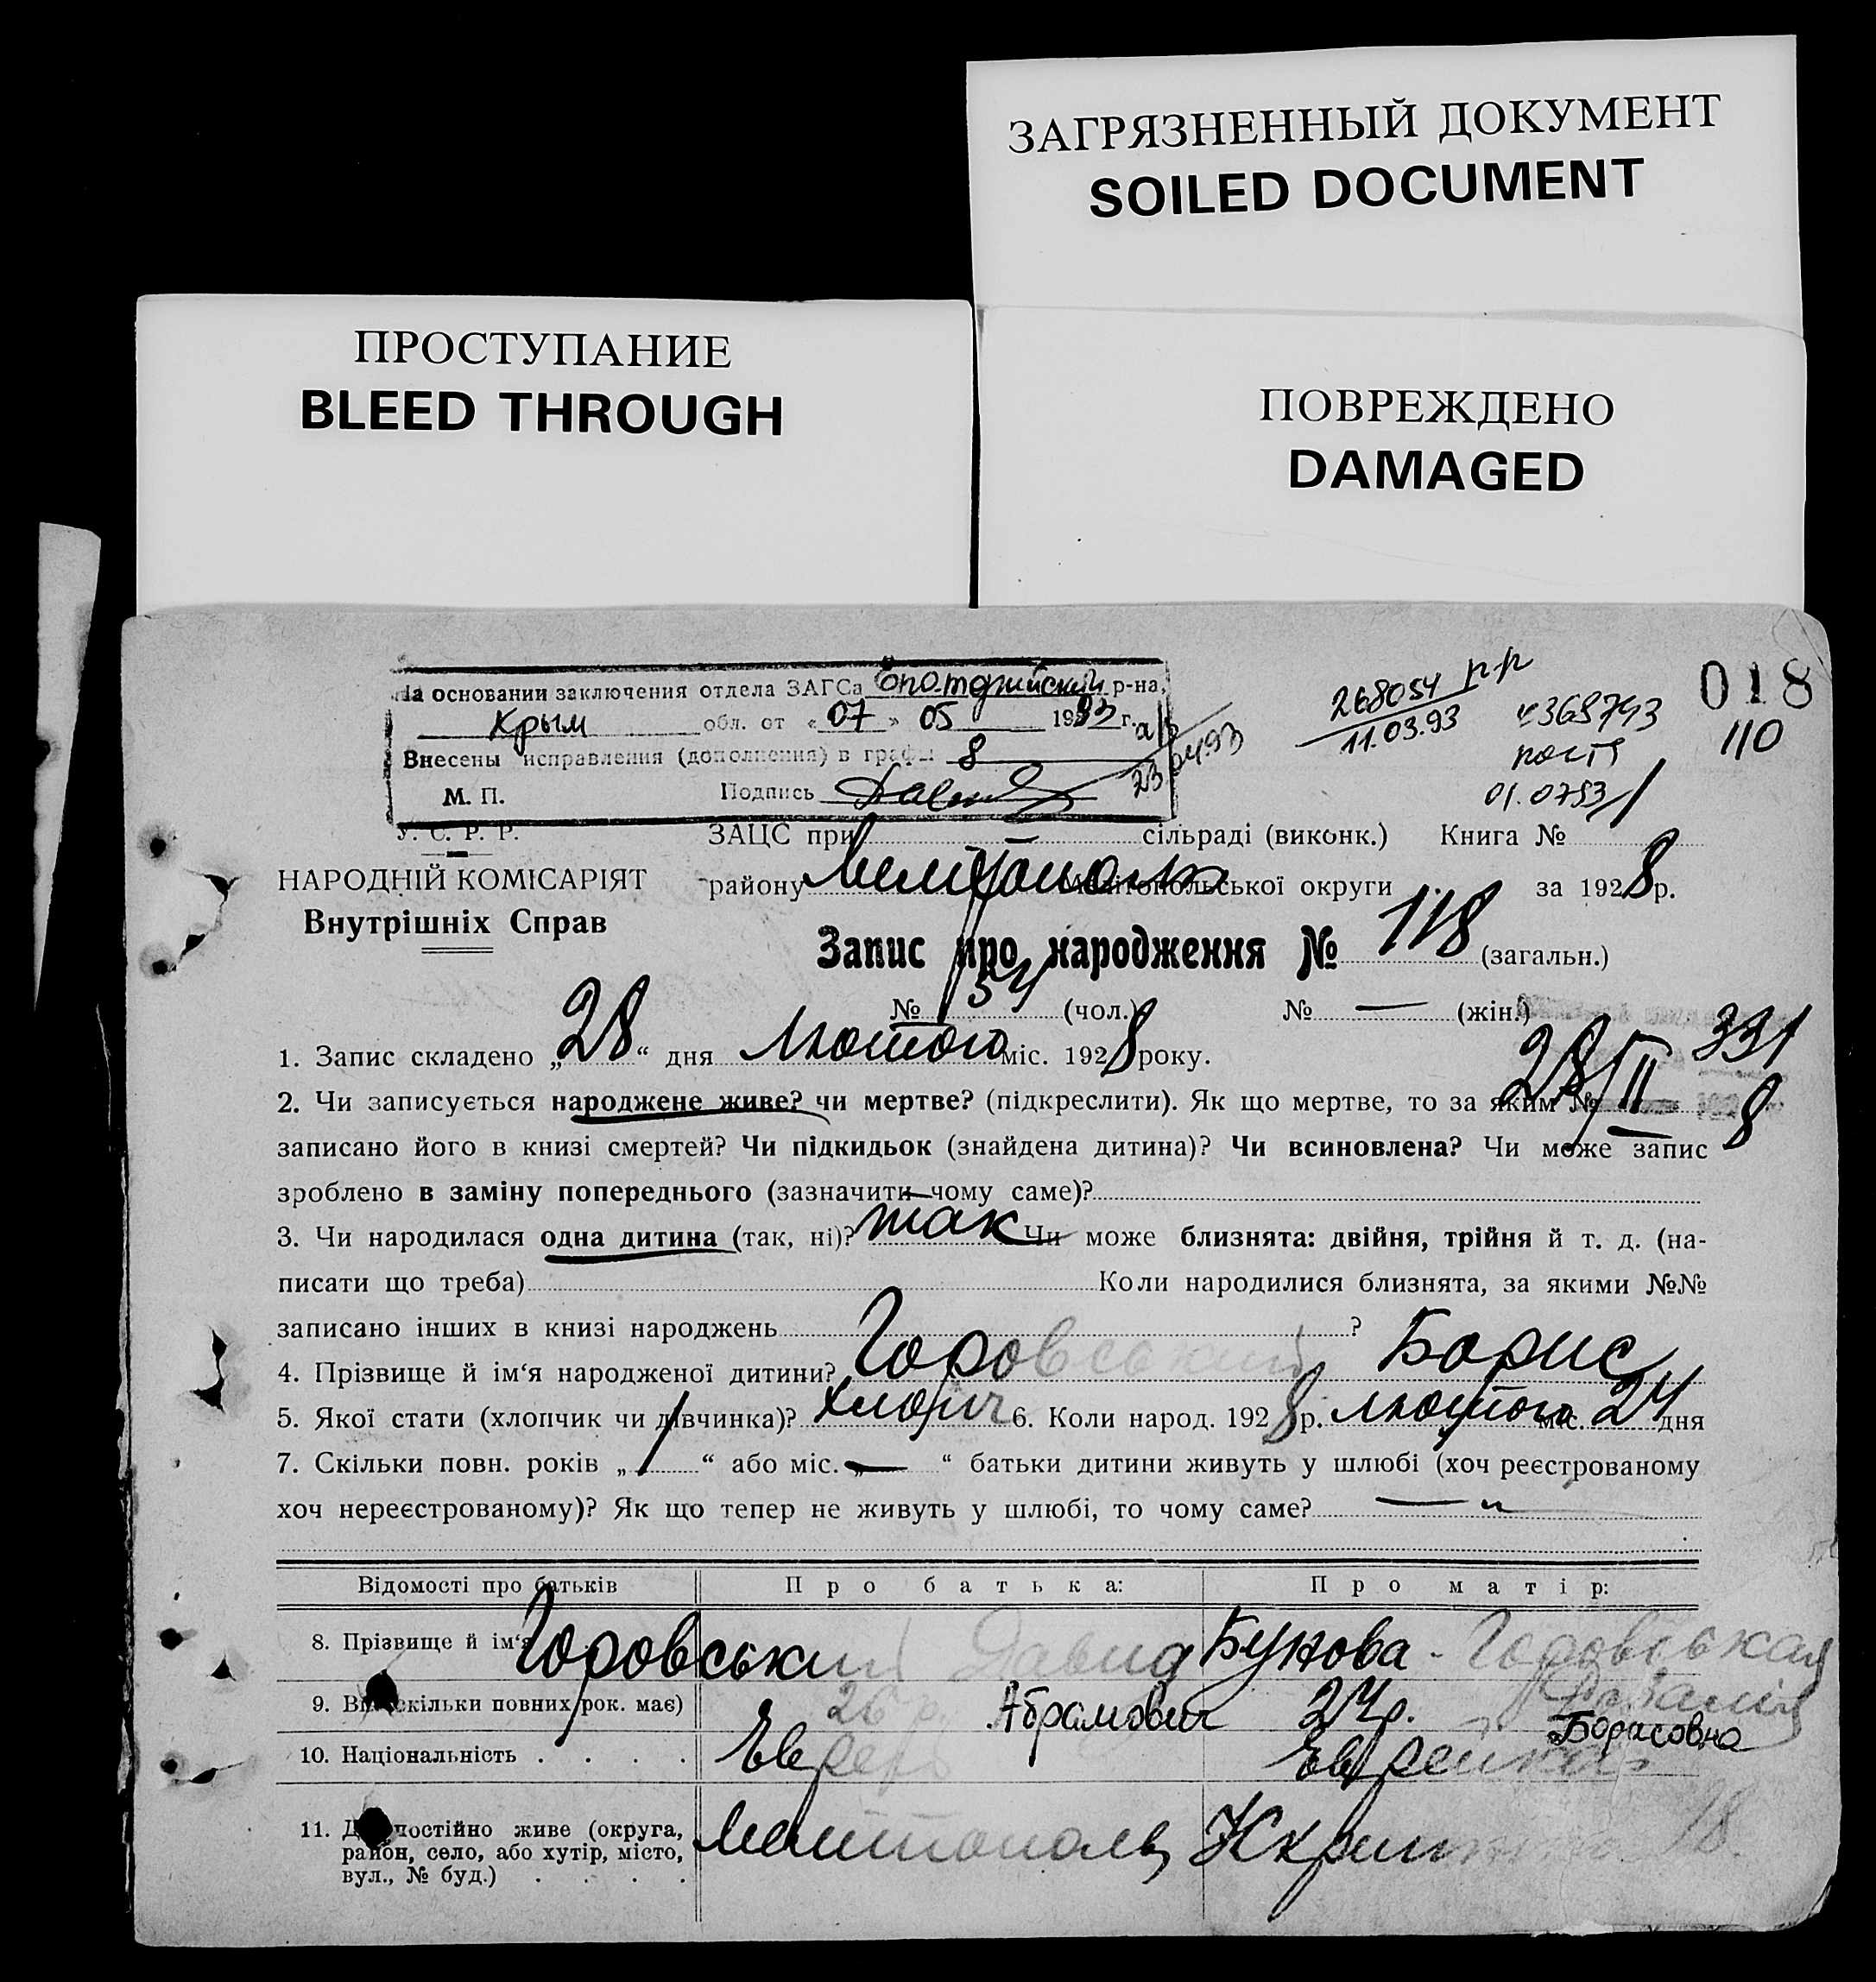 ЗАГРЯЗНЕННЫЙ ДОКУМЕНТ
SOILED DOCUMENT
ПРОСТУПАНИЕ
BLEED THROUGH
ПОВРЕЖДЕНО
DAMAGED
На основании заключения отдела ЗАГСа р-на,
Крым обл. от «07» 05 1993 г.
Внесены исправления (дополнения) в графы 8
М. П. Подпись
268054
11.03.93
018
110
У. С. Р. Р.
ЗАЦС при — сільраді (виконк.) Книга №
НАРОДНІЙ КОМІСАРІЯТ
Внутрішніх Справ
району Мелітополь Мелітопольської округи за 1928 р.
Запис про народження № 118 (загальн.)
№ 54 (чол.) № — (жін.)
331
28/II 8
1. Запис складено „28“ дня Лютого міс. 1928 року.
2. Чи записується народжене живе? чи мертве? (підкреслити). Як що мертве, то за яким №
записано його в книзі смертей? Чи підкидьок (знайдена дитина)? Чи всиновлена? Чи може запис
зроблено в заміну попереднього (зазначити чому саме)?
3. Чи народилася одна дитина (так, ні)? так Чи може близнята: двійня, трійня й т. д. (на-
писати що треба) Коли народилися близнята, за якими №№
записано інших в книзі народжень ?
4. Прізвище й ім‘я народженої дитини? Горовський Борис
5. Якої стати (хлопчик чи дівчинка)? хлопч 6. Коли народ. 1928 р. лютого міс. 24 дня
7. Скільки повн. років „1“ або міс. „—“ батьки дитини живуть у шлюбі (хоч реєстрованому
хоч нереєстрованому)? Як що тепер не живуть у шлюбі, то чому саме? — „
Відомості про батьків Про батька: Про матір:
8. Прізвище й ім‘я Горовський Давид Абрамович Бунова - Горовськая Борисовна
9. Вік (скільки повних рок. має) 26 р. 24 р.
10. Національність . . . . Еврей Еврейка
11. Де постійно живе (округа,
район, село, або хутір, місто,
вул., № буд.) . . . .
Мелітополь 18.